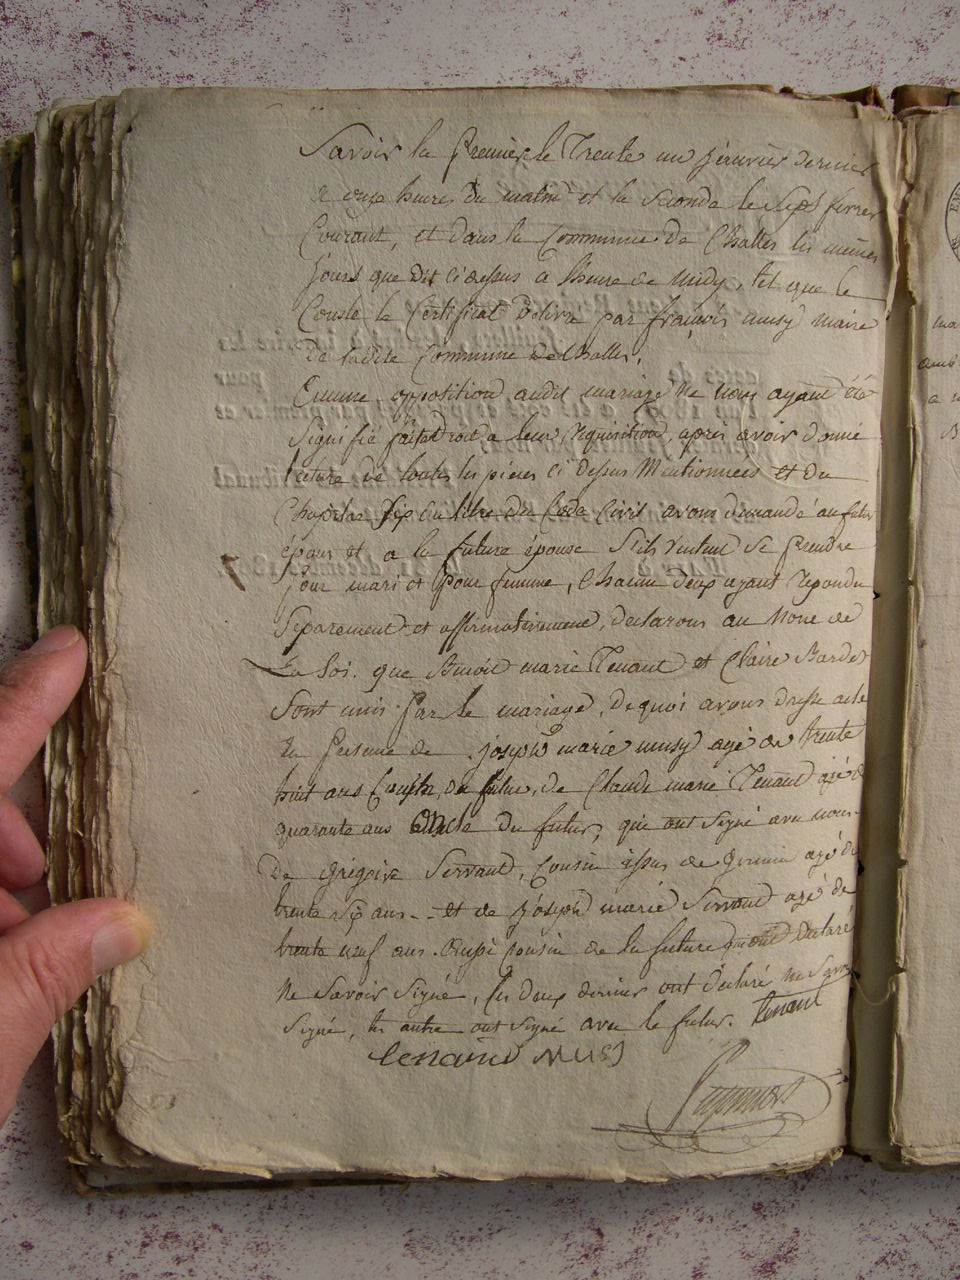 Savoir la premiere le Trente un janvier dernier
a onze heures du matin et la seconde le Sept fevrier
Courant, et dans la Commune de Challes les memes
jours que dit ci dessus a l'heure de midy, tel que le
Conste le Certificat delivré par françois musy maire
de ladite Commune de Challes.
Eucune opposition audit mariage ne nous ayant été
Signifié faisant droit a leur requisition, après avoir donné
lecture de toutes les pieces ci dessus Mentionnees et du
Chapitre Six du titre du Code Civil avons demandé au futur
époux et a la future épouse S'ils veulent se prendre
pour mari et pour femme, Chacun d'eux ayant repondu
Separement et affirmativement, declarons au Nom de
La Loi que Benoit marie Tenant et Claire Bardet
Sont unis par le mariage, de quoi avons dressé acte
En presence de joseph marie musy agé de trente
huit ans Cousin du futur, de Claude marie Tenand agé de
quarante ans oncle du futur, qui ont Signé avec nous
De grégoire Servant, Cousin issus de germain agé de
trente Six ans et de joseph marie Servant agé de
trente neuf ans aussi Cousin de la future declaré
ne Savoir Signé, les deux dernier ont declaré ne Savoir
Signé, les autre ont signé avec le futur. tenant
tenand MUSY